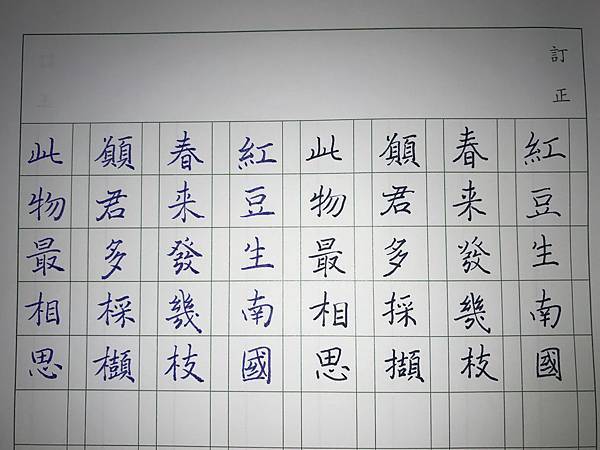 訂正
紅豆生南國
春来發幾枝
願君多採擷
此物最相思
紅豆生南國
春来發幾枝
願君多採擷
此物最相思